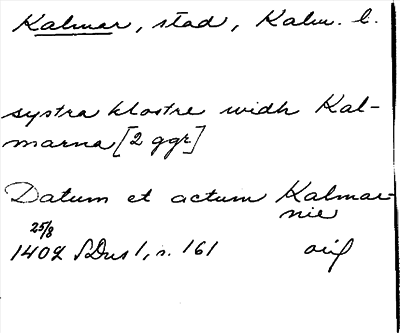 Kalmar, stad, Kalm. l.
systra klostre widh Kal-
marna [2 ggr]
Datum et actum Kalmar-
nie
25/8
1402 SDns 1, s. 161 orig